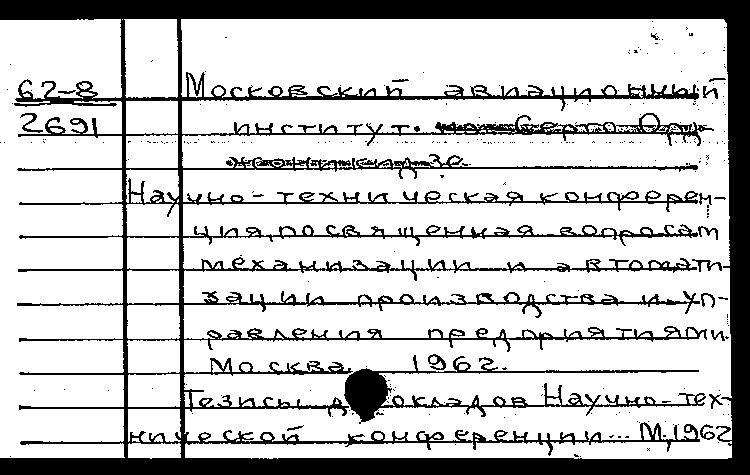 62-8 Московский авиационный
2691 институт. им. Серго Орд-
жоникидзе.
Научно-техническая конферен-
ция, посвященная вопросам
механизации и автомати-
зации производства и уп-
равления предприятиями.
Москва. 1962.
Тезисы докладов Научно-тех-
нической конференции... М., 1962